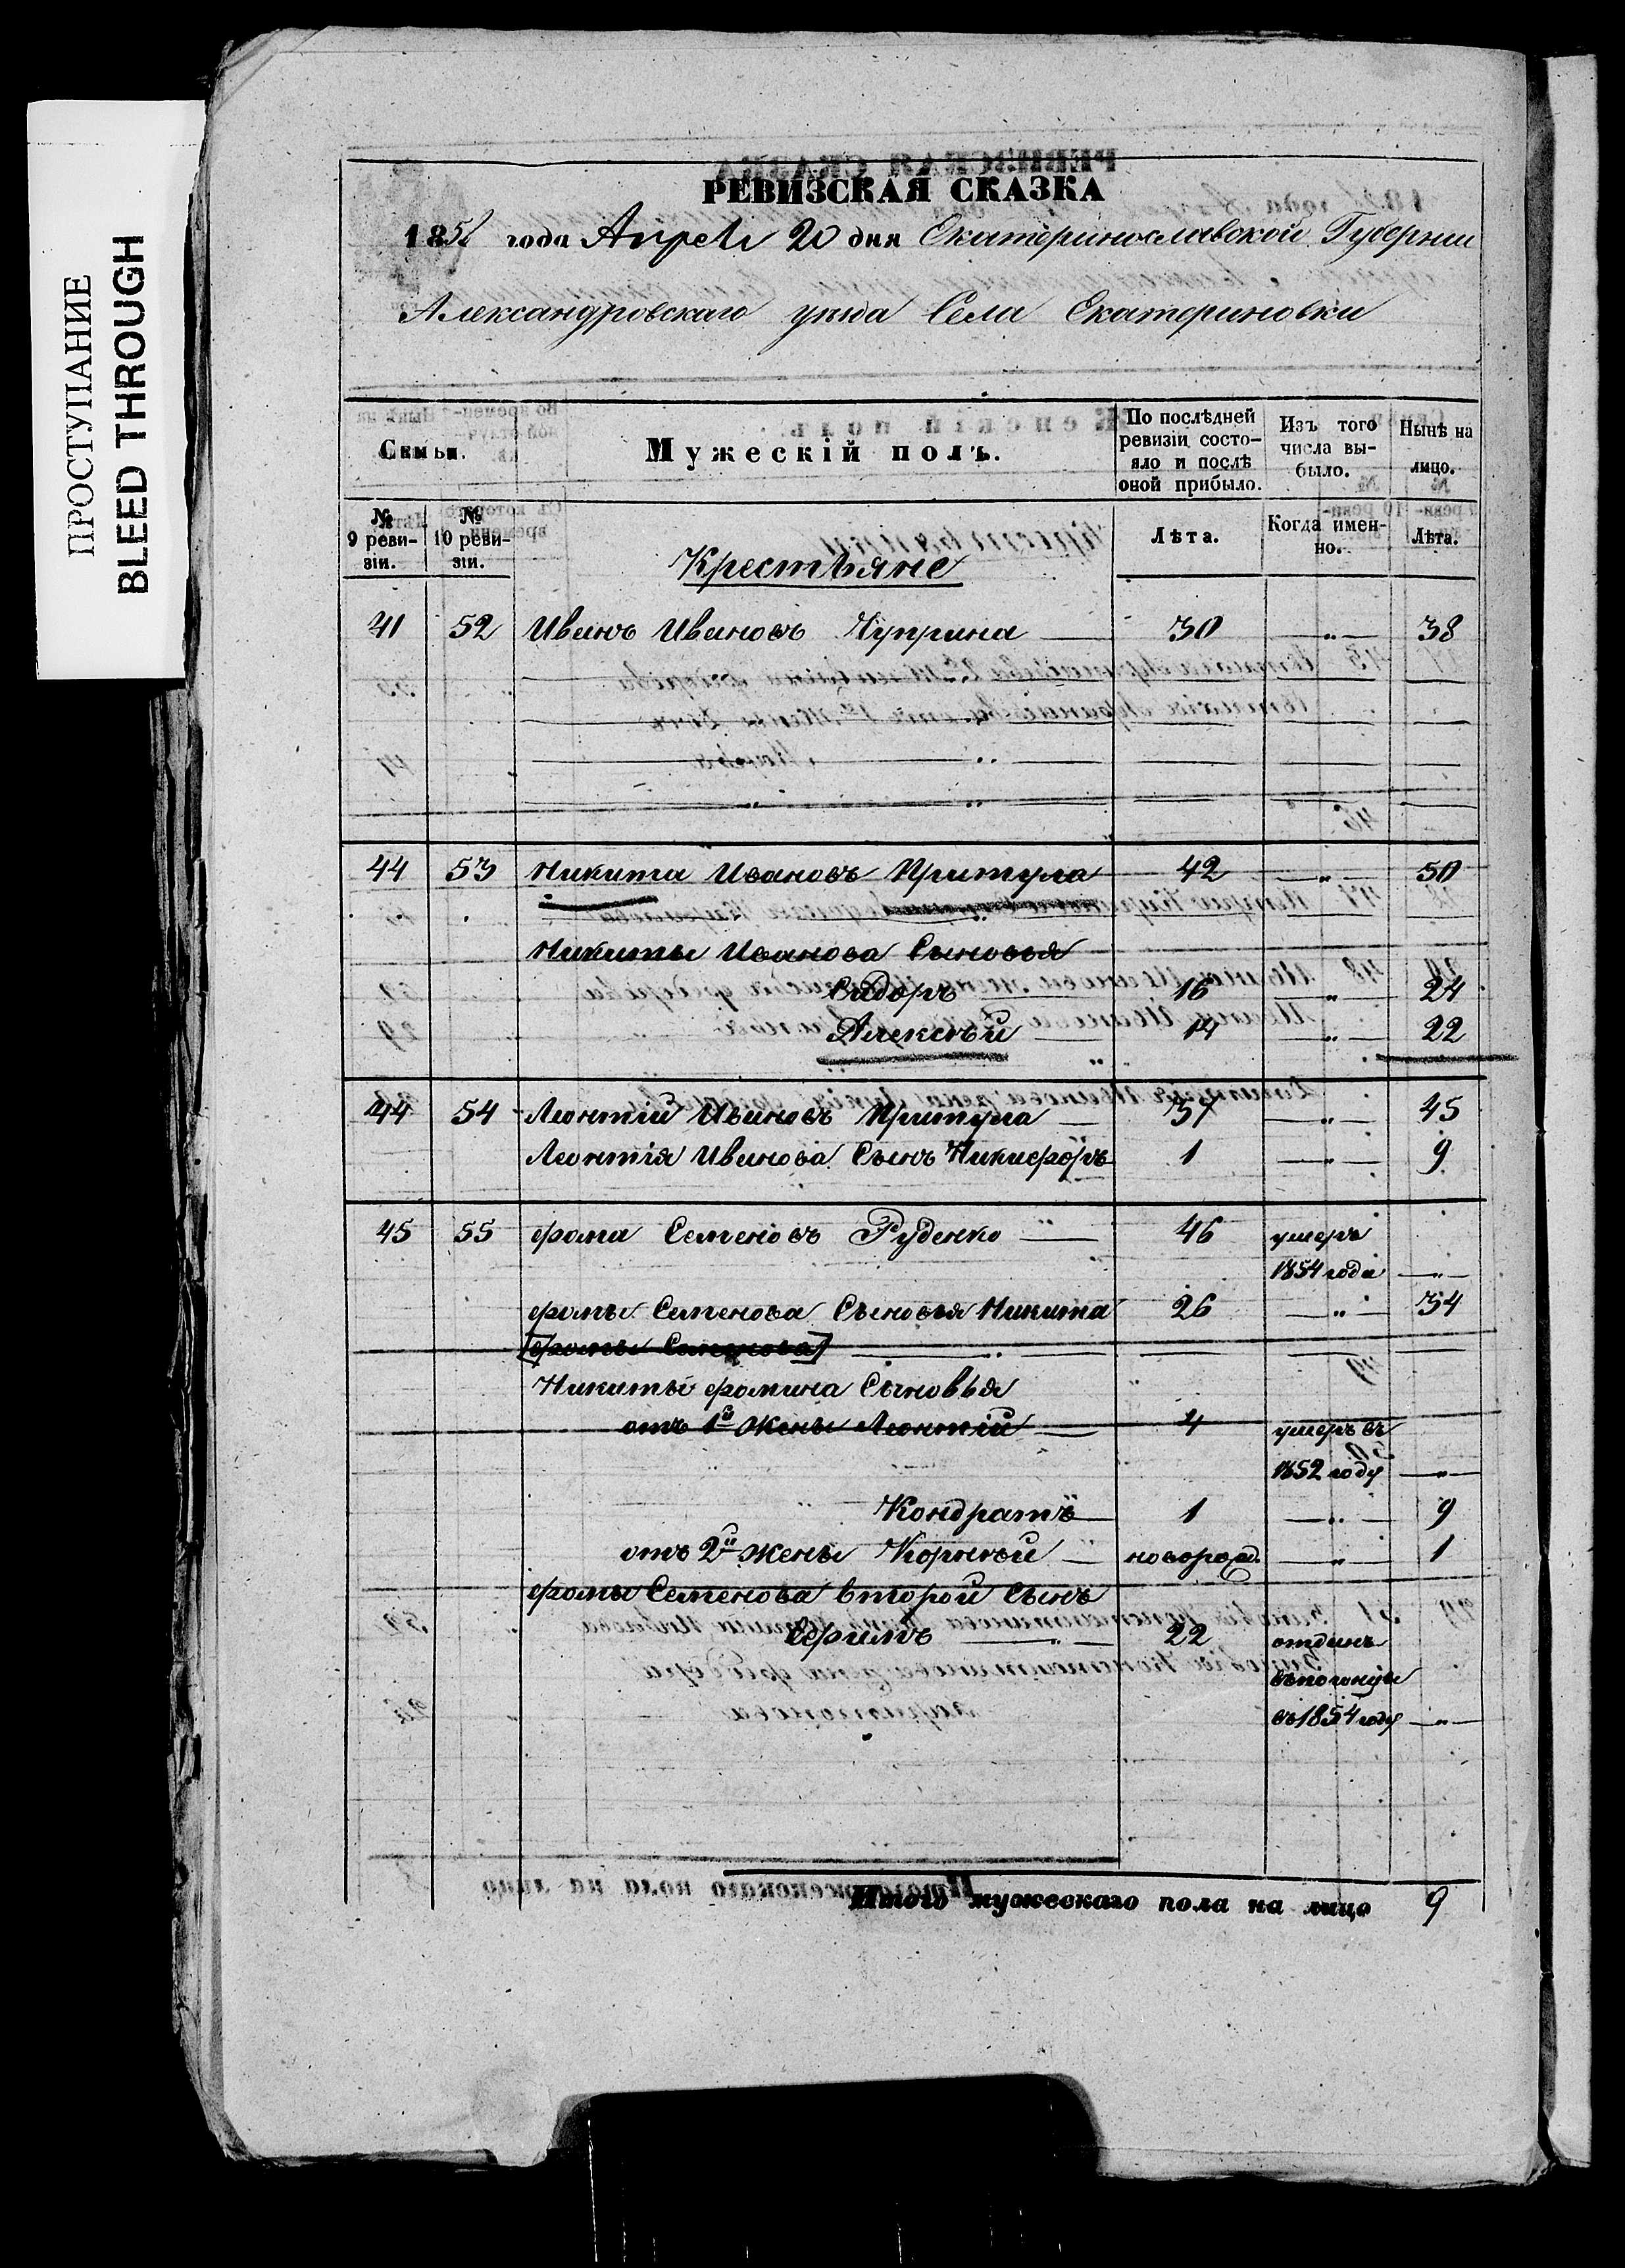 ПРОСТУПАНИЕ
BLEED THROUGH
РЕВИЗСКАЯ СКАЗКА
1858 года Апреля 20 дня Екатеринославской Губернии
Александровскаго уезда Села Екатериновки
Семьи. Мужескій полъ. По послѣдней ревизіи состояло и послѣ оной прибыло. Изъ того числа выбыло. Нынѣ на лицо.
№ 9 ревизіи. № 10 ревизіи. Лѣта. Когда именно. Лѣта.
Крестьяне
41 52 Иванъ Ивановъ Чуприна 30 — „ — 38
44 53 Никита Ивановъ Притула 42 — „ — 50
Никиты Иванова Сыновья
Сидоръ 16 — „ — 24
Алексѣй 14 — „ — 22
44 54 Леонтій Ивановъ Притула 37 — „ — 45
Леонтія Иванова Сынъ Никифоръ 1 — „ — 9
45 55 Фома Семеновъ Руденко 46 умеръ
1854 года — „ —
Фомы Семенова Сыновья Никита 26 — „ — 34
[Фомы Семенова]
Никиты Фомина Сыновья
отъ 1й Жены Леонтій 4 умеръ въ
1852 году — „ —
Кондратъ 1 — „ — 9
отъ 2й Жены Корнѣй новорожд. — „ — 1
Фомы Семенова второй Сынъ
Ефимъ — „ — 22 отданъ
въ 1854 году — „ —
Итого мужескаго пола на лицо 9